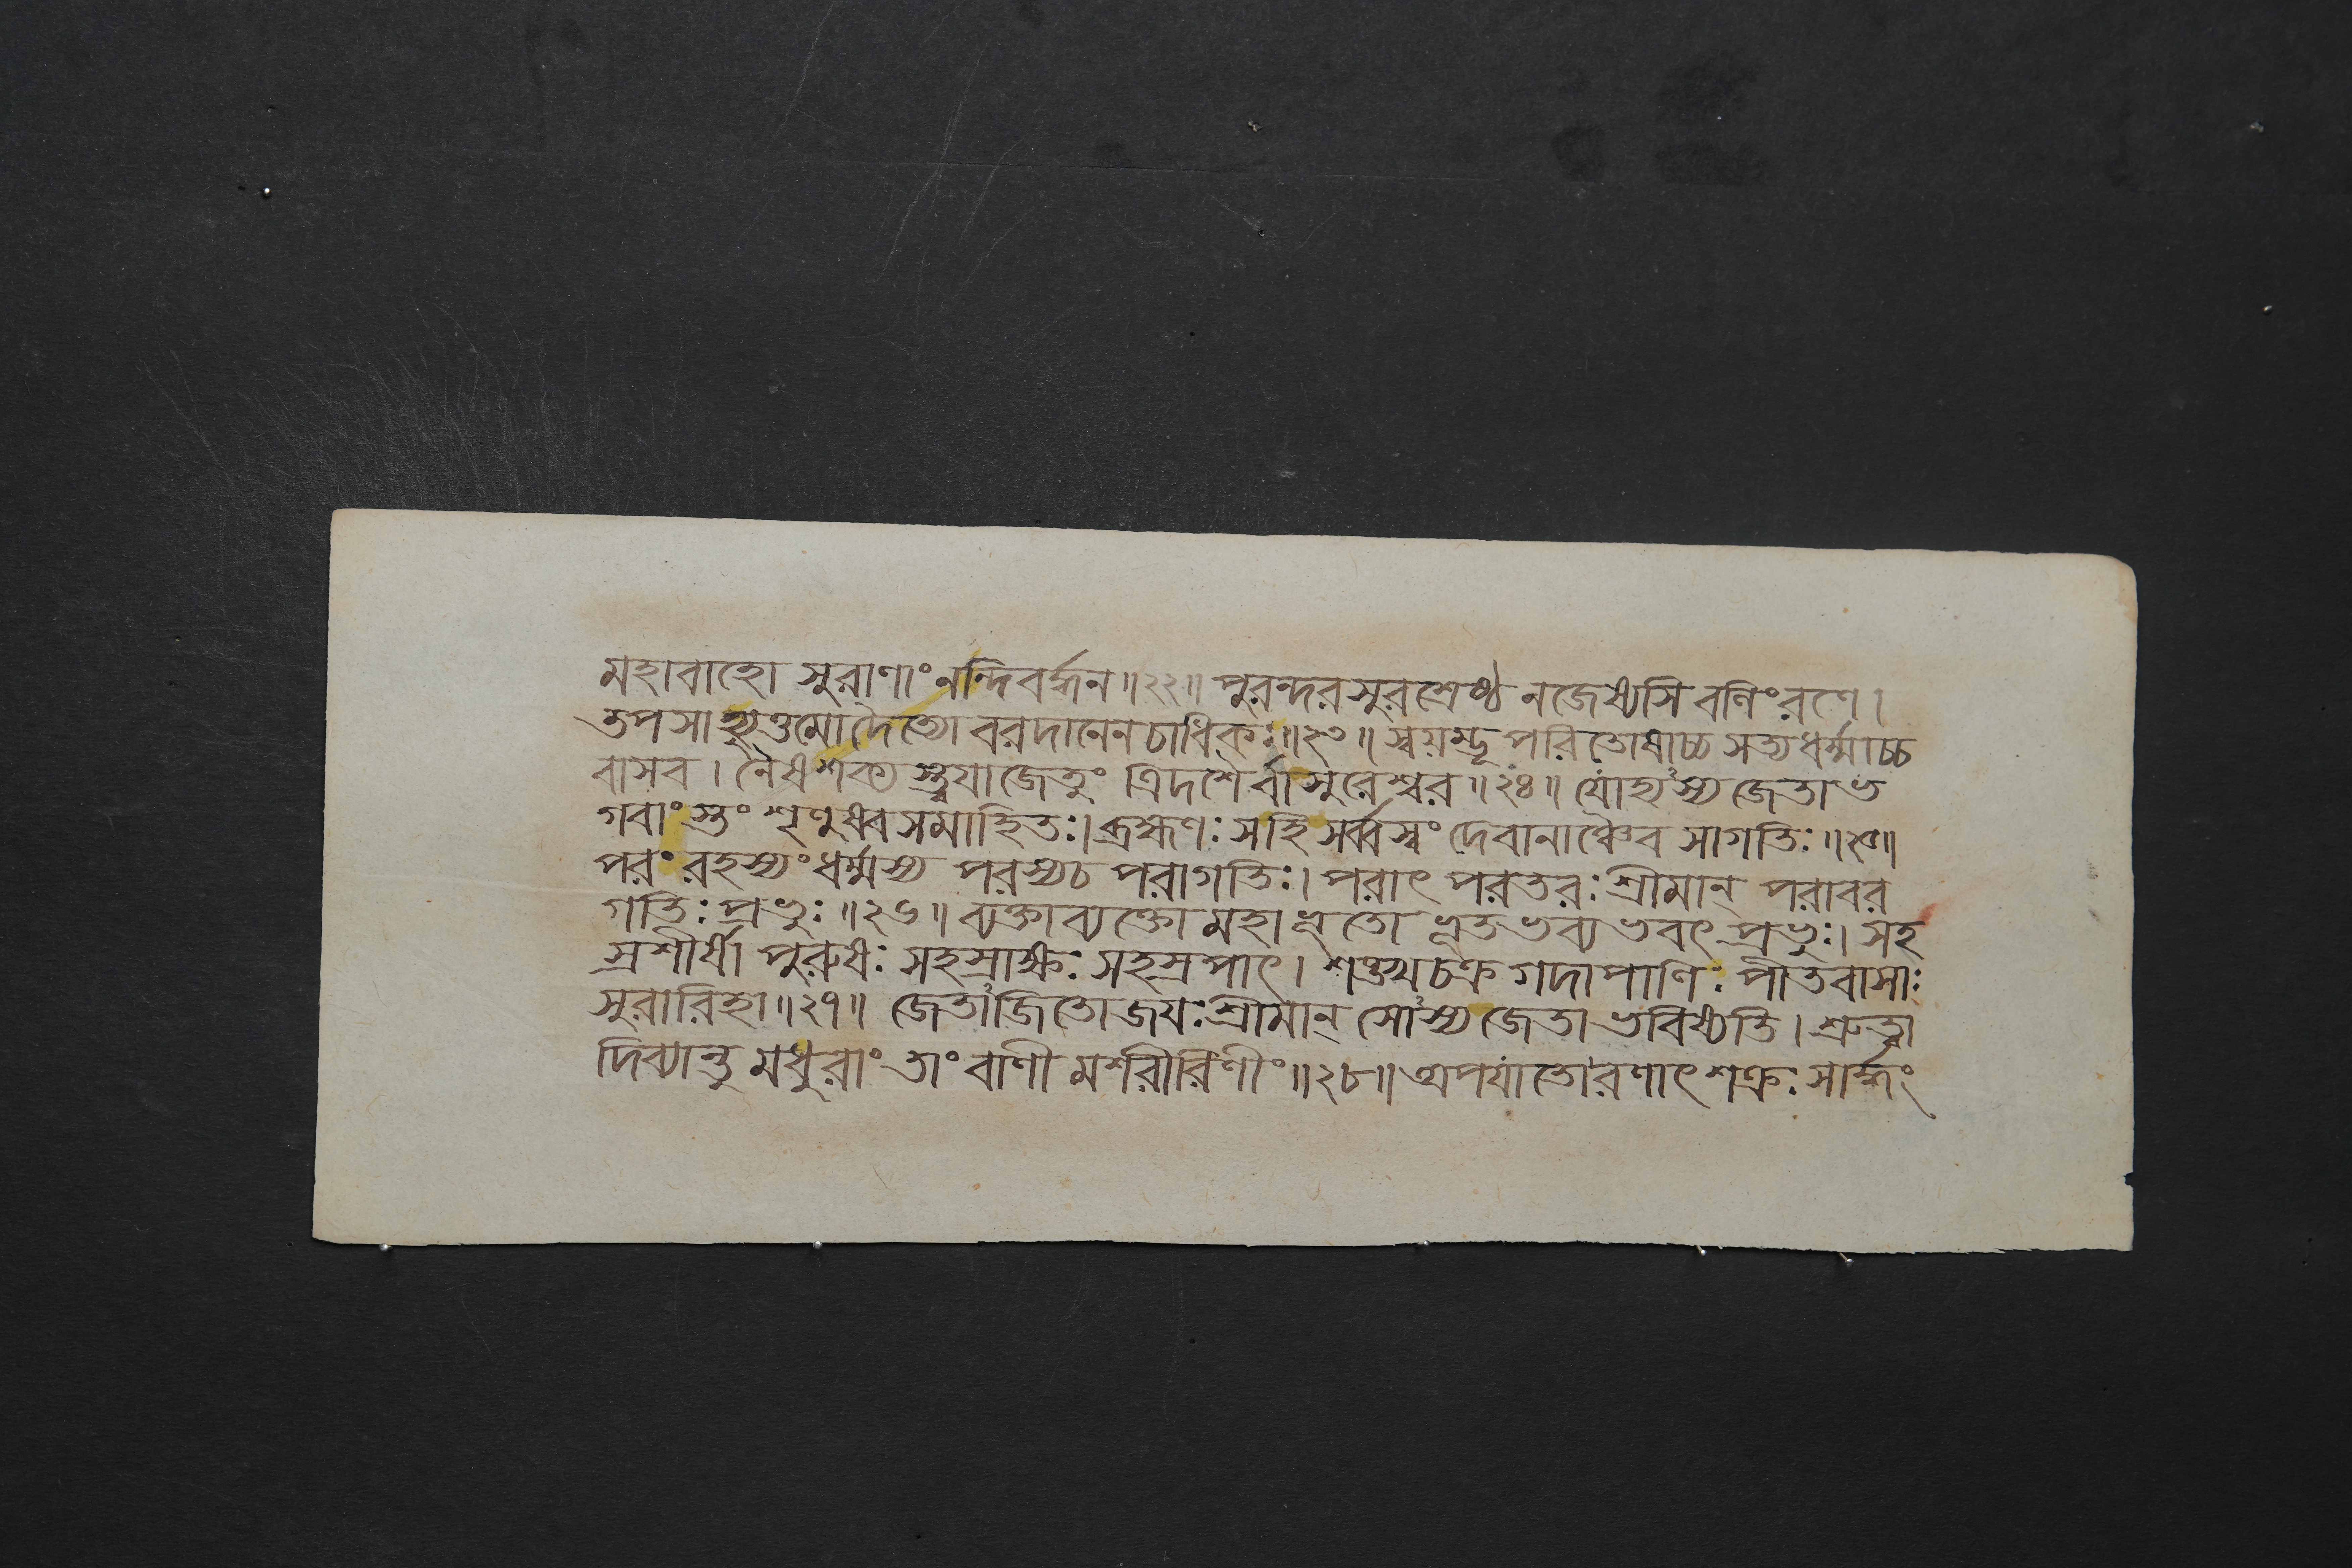 মহাবাহো সুরাণাং নন্দিবর্দ্ধন॥২২॥ পুরন্দরসুরশ্রেষ্ঠ নজেষ্যসি বলিংরণে।
তপসাহ্যুত্তমোদৈত্যো বরদানেনচাধিকঃ॥২৩॥ স্বয়ম্ভূপরিতোষাচ্চ সত্যধর্ম্মাচ্চ
বাসব। নৈষশক্যস্ত্বয়াজেতুং ত্রিদশৈর্বাসুরেশ্বর॥২৪॥ যোহ্যস্য জেতাভ
গবাংস্তং শৃণুষ্বসমাহিতঃ। ব্রহ্মণঃ সহিসর্ব্বস্বং দেবানাঞ্চৈব সাগতিঃ॥২৫॥
পরং রহস্যং ধর্ম্মস্য পরস্যচ পরাগতিঃ। পরাৎ পরতরঃ শ্রীমান্ পরাবর
গতিঃ প্রভুঃ॥২৬॥ ব্যক্তাব্যক্তো মহাভূতো ভূতভব্যভবৎ প্রভুঃ। সহ
স্রশীর্ষা পুরুষঃ সহস্রাক্ষঃ সহস্রপাৎ। শঙ্খচক্রগদাপাণিঃ পীতবাসাঃ
সুরারিহা॥২৭॥ জেতাজিতোজয়ঃ শ্রীমান্ সোস্য জেতা ভবিষ্যতি। শ্রুত্বা
দিব্যান্তু মধুরাং তাং বাণীমশরীরিণীং॥২৮॥ অপযাতোরণাৎ শক্রঃ সার্দ্ধং